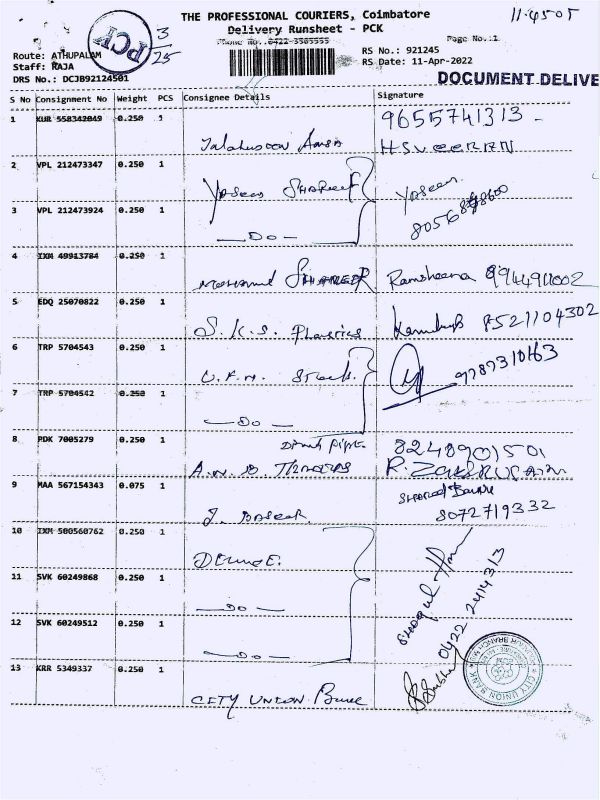 THE PROFESSIONAL COURIERS, Coimbatore
Delivery Runsheet - PCK
11-4505
PCK
3
25
Phone No.:0422-3505555
Page No.:1
Route: ATHUPALAM
Staff: RAJA
DRS No.: DCJB92124501
RS No.: 921245
RS Date: 11-Apr-2022
DOCUMENT DELIVE
S No Consignment No Weight PCS Consignee Details Signature
1 KUR 558342049 0.250 1 9655741313 -
2 VPL 212473347 0.250 1 Yaseen Shareef Yaseen.
3 VPL 212473924 0.250 1 — Do —
4 IXM 49913784 0.250 1 Mohamed Ramsheena
5 EDQ 25070822 0.250 1 S.K.S. Plastics 8521104302
6 TRP 5704543 0.250 1 9787310163
7 TRP 5704542 0.250 1 — Do —
8 PDK 7005279 0.250 1 A.N.B. Timbers 8248901501
9 MAA 567154343 0.075 1 J. Baseer 8072719332
10 IXM 500560762 0.250 1
11 SVK 60249868 0.250 1 — Do —
12 SVK 60249512 0.250 1 — Do — 0422 2414313
13 KRR 5349337 0.250 1 CITY UNION Bank
CITY UNION BANK